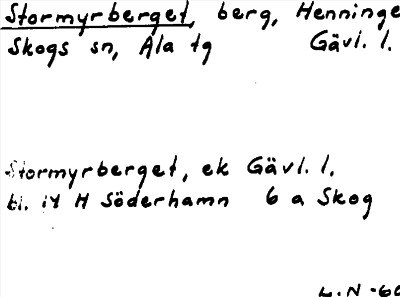 Stormyrberget, berg, Henninge
Skogs sn, Ala tg Gävl. l.
Stormyrberget, ek Gävl. l.
bl. 14 H Söderhamn 6 a Skog
L.N -60